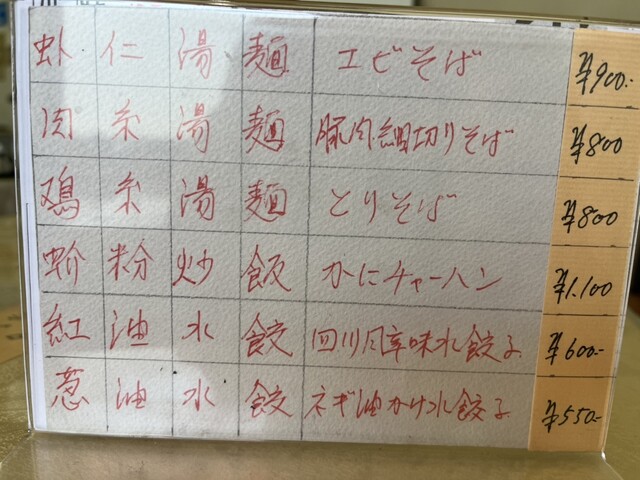 虾仁湯麺 エビそば ¥900-
肉糸湯麺 豚肉細切りそば ¥800
鶏糸湯麺 とりそば ¥800
蚧粉炒飯 かにチャーハン ¥1.100
紅油水餃 四川風辛味水餃子 ¥600-
葱油水餃 ネギ油かけ水餃子 ¥550-